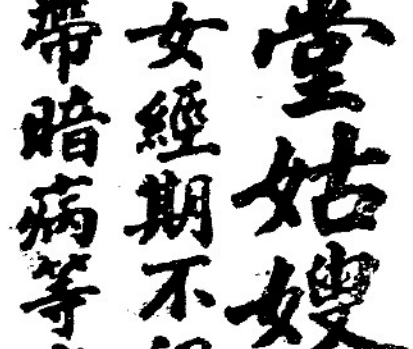 堂姑嫂
女經期不
帶暗病等